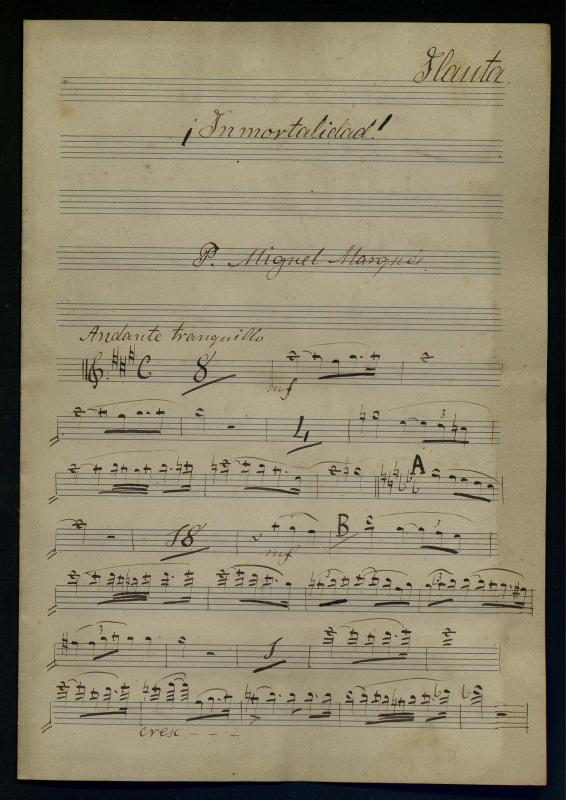 Flauta
¡Inmortalidad!
P. Miguel Marqués.
Andante tranquillo
8
mf
4
3
A
18
mf
B
3
3
1
cresc - - - -